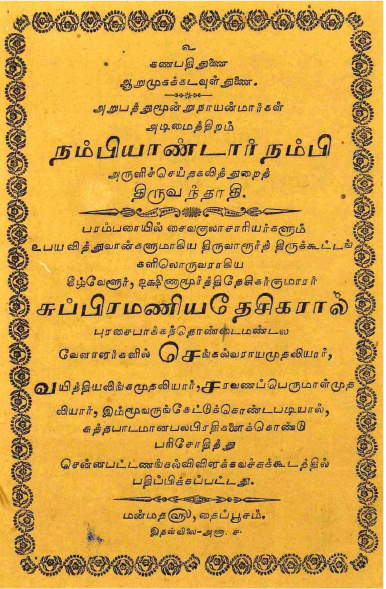 உ
கணபதிதுணை
ஆறுமுகக்கடவுள் துணை.
அறுபத்துமூன்றுநாயன்மார்கள்
அடிமைத்திறம்
நம்பியாண்டார் நம்பி
அருளிச்செய்தகலித்துறைத்
திருவந்தாதி.
பரம்பரையில் சைவகுலாசாரியர்களும்
உபயவித்துவான்களுமாகிய திருவாரூர்த் திருக்கூட்டங்
களிலொருவராகிய
கீழ்வேளூர், தக்ஷிணாமூர்த்திதேசிகர்குமாரர்
சுப்பிரமணியதேசிகரால்
புரசைபாக்கந்தொண்டைமண்டல
வேளாளர்களில் செங்கல்வராயமுதலியார்,
வயித்தியலிங்கமுதலியார், சரவணப்பெருமாள்முத
லியார், இம்மூவருங்கேட்டுக்கொண்டபடியால்,
சுத்தபாடமானபலபிரதிகளைக்கொண்டு
பரிசோதித்து
சென்னபட்டணங்கல்விவிளக்கவச்சுக்கூடத்தில்
பதிப்பிக்கப்பட்டது.
மன்மத௵, தைப்பூசம்.
இதன்விலை-அணா. ச.